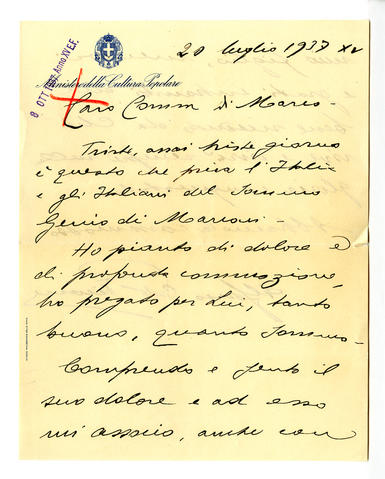 20 luglio 1937 XV
8 OTT 1937 Anno XV E.F.
Ministero della Cultura Popolare
Caro Comm Di Marco -
Triste, assai triste giorno
è questo che priva l'Italia
e gli Italiani del sommo
Genio di Marconi -
Ho pianto di dolore e
di profonda commozione,
ho pregato per Lui, tanto
buono, quanto sommo -
Comprendo e sento il
suo dolore e ad esso
mi associo, anche con